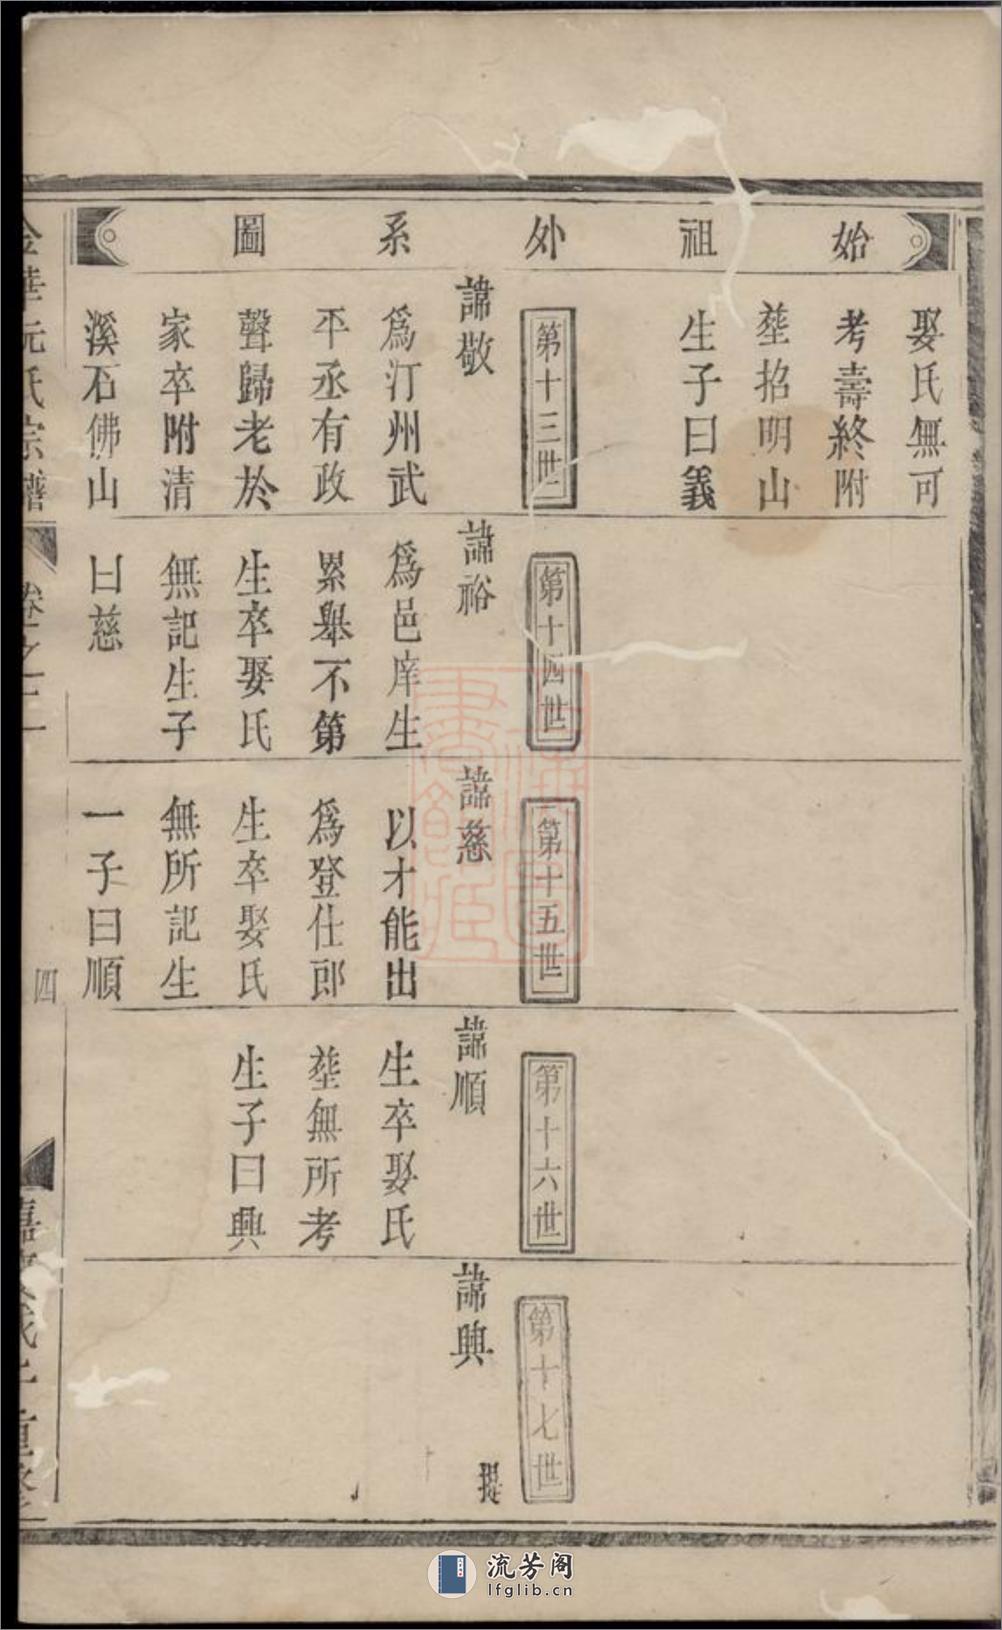 始祖外系圖
娶氏無可
考壽終附
塟招明山
生子曰義
第十三世
諱敬
爲汀州武
平丞有政
聲歸老於
家卒附清
溪石佛山
第十四世
諱裕
爲邑庠生
累舉不第
生卒娶氏
無記生子
曰慈
第十五世
諱慈
以才能出
爲登仕郎
生卒娶氏
無所記生
一子曰順
第十六世
諱順
生卒娶氏
塟無所考
生子曰興
第十七世
諱興
提
金華阮氏宗譜
卷之二
四
嘉慶
重修
流芳阁
lfglib.cn